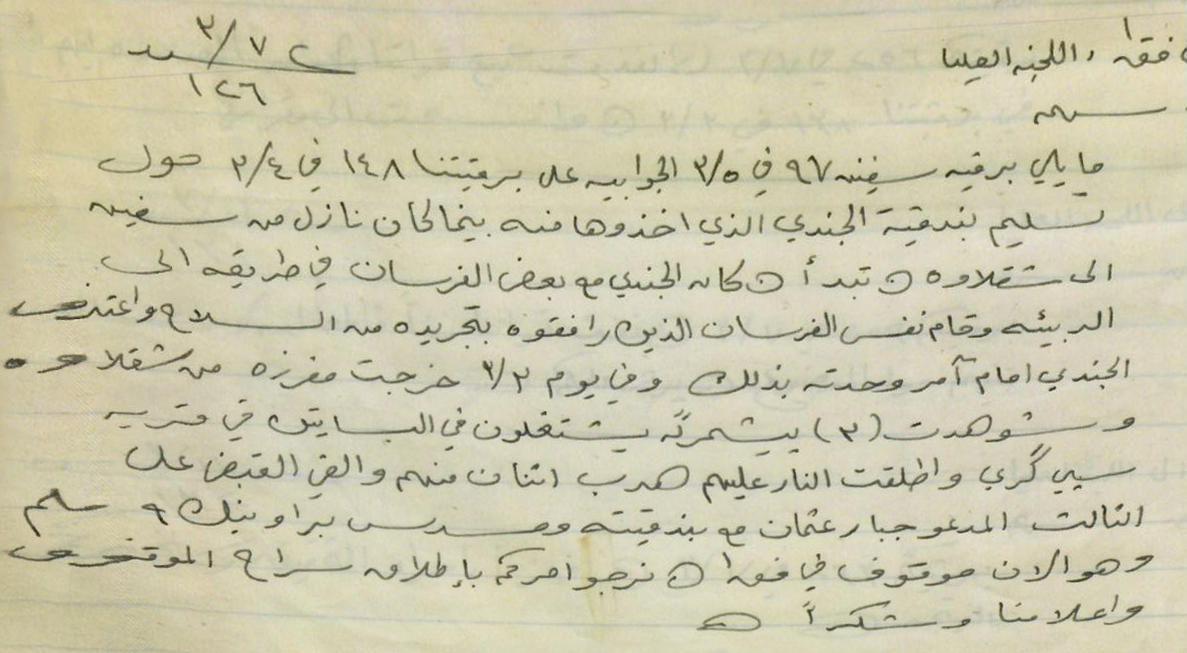 فق١ ، اللجنه العليا
٢٧/٣
١٢٦
ما يلي برقيه سفين ٩٧ في ٣/٥ الجوابيه على برقيتنا ١٤٨ في ٣/٤ حول
تسليم بندقية الجندي الذي اخذوها منه بينما كان نازل من سفين
الى شقلاوه ن تبدأ ن كان الجندي مع بعض الفرسان في طريقه الى
الربيئه وقام نفس الفرسان الذين رافقوه بتجريده من السلاح واعترف
الجندي امام آمر وحدته بذلك وفي يوم ٣/٣ خرجت مفرزه من شقلاوه
وشوهدت (٣) پيشمرگه يشتغلون في البساتين في قريه
سيبي گري واطلقت النار عليهم هرب اثنان منهم والقي القبض على
الثالث المدعو جبار عثمان مع بندقيته ومسدس براونينك ٩ ملم
وهو الان موقوف في فق١ ن نرجو امركم بإطلاق سراح الموقوف
واعلامنا وشكراً ن